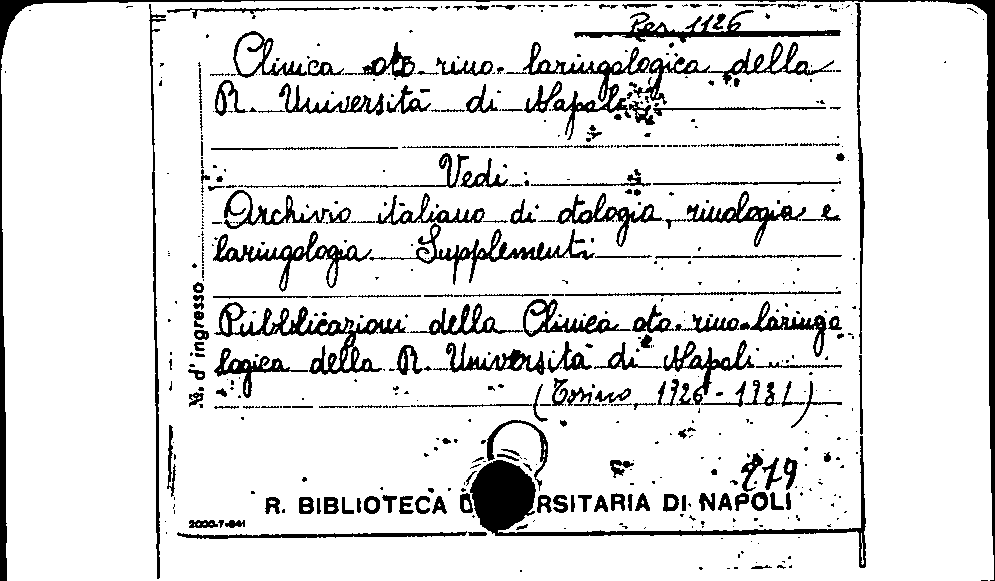 Per. 1126
Clinica oto-rino-laringologica della
R. Università di Napoli
Vedi:
Archivio italiano di otologia, rinologia e
laringologia. Supplementi
Pubblicazioni della Clinica oto-rino-laringo
logica della R. Università di Napoli
(Torino, 1926-1931)
279
No. d'ingresso
R. BIBLIOTECA UNIVERSITARIA DI NAPOLI